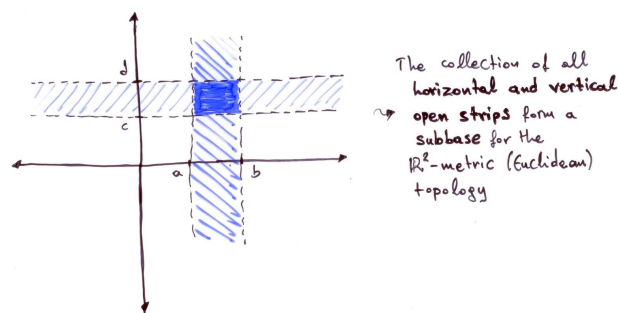 d
c
a
b
The collection of all
horizontal and vertical
↝ open strips form a
subbase for the
ℝ²-metric (Euclidean)
topology